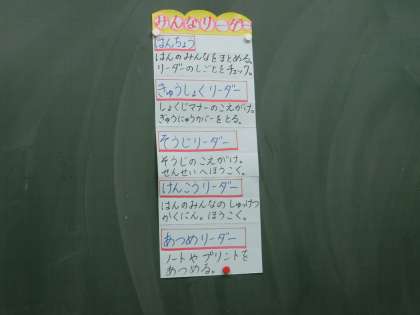 みんなリーダー
はんちょう
はんのみんなをまとめる。
リーダーのしごとをチェック。
きゅうしょくリーダー
しょくじマナーのこえがけ。
ぎゅうにゅうカバーをとる。
そうじリーダー
そうじのこえがけ。
せんせいへほうこく。
けんこうリーダー
はんのみんなのしゅけつ
かくにん。ほうこく。
あつめリーダー
ノートやプリントを
あつめる。